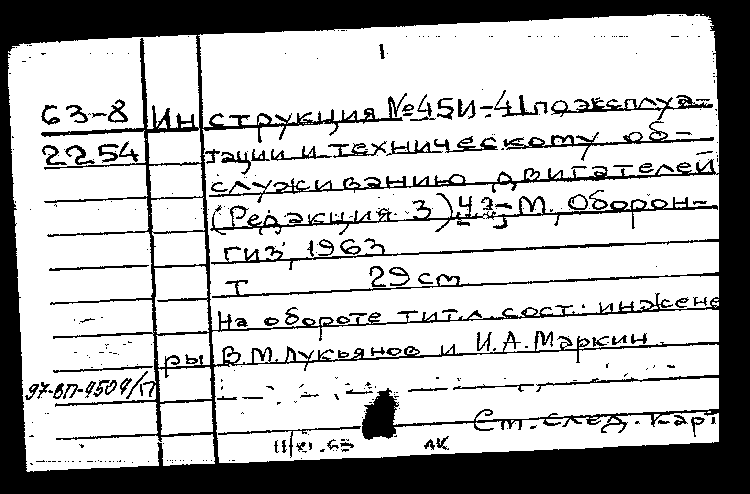 1
63-8 Инструкция №45И-41 по эксплуа-
2254 тации и техническому об-
служиванию двигателей
(Редакция 3) Ч 3- М., Оборон-
гиз, 1963
т 29 cm
На обороте тит.л. сост.: инжене
ры В.М.Лукьянов и И.А.Маркин.
97-ВП-4504/П
См. след. карт
11/XI.63 АК